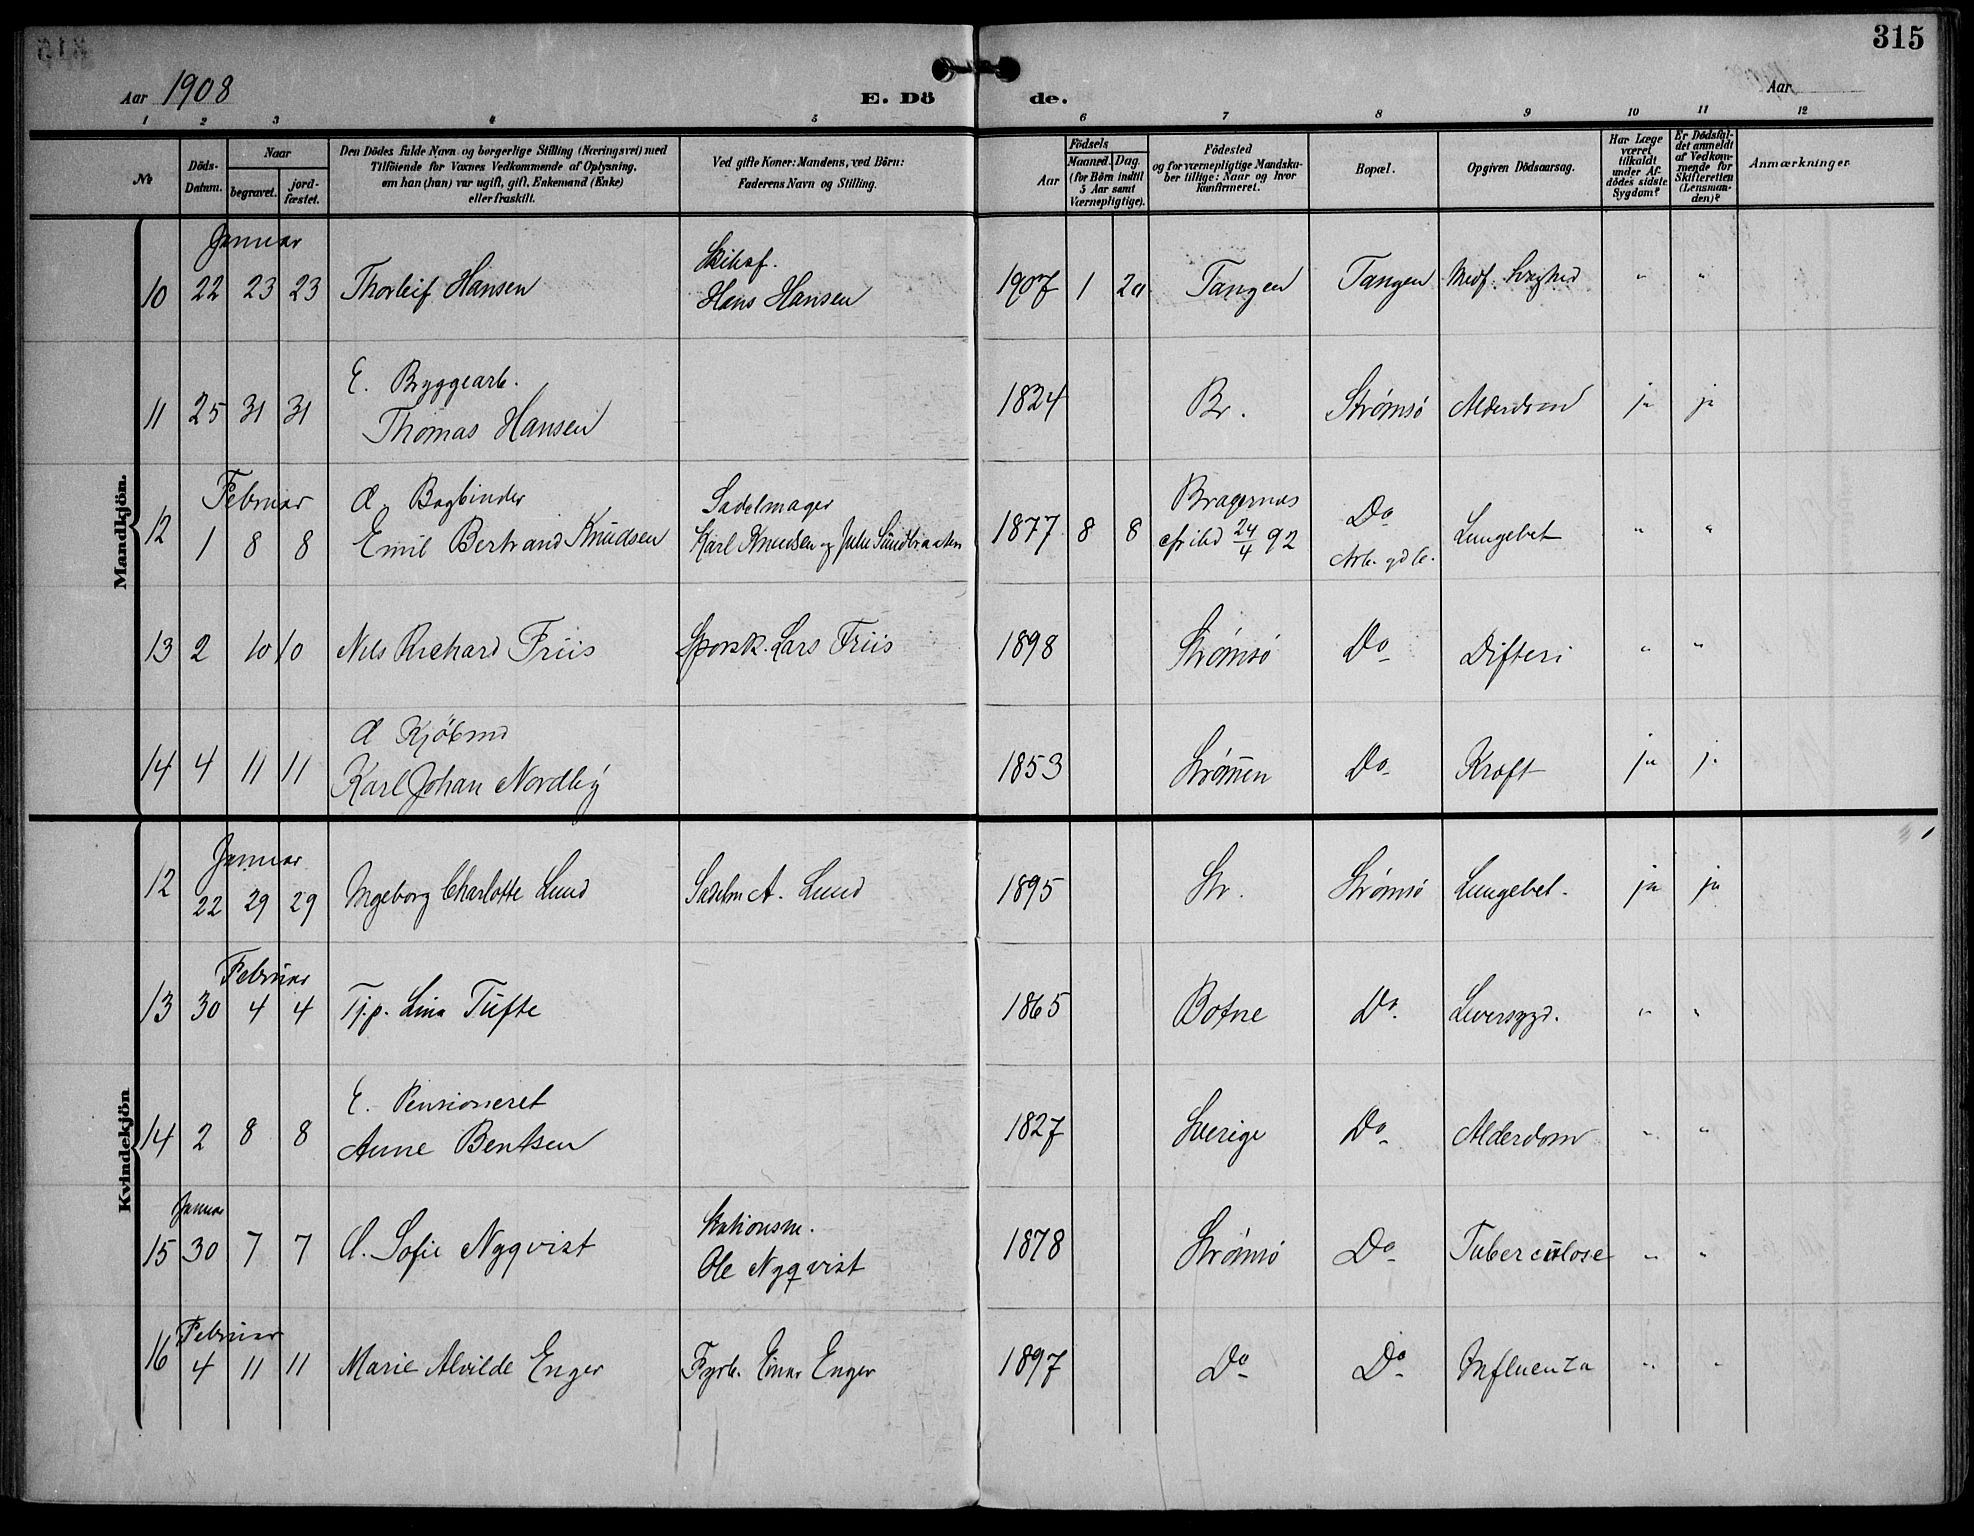 315
Aar 1908
E. Dö de.
Aar
1 2 3 4 5 6 7 8 9 10 11 12
No
Döds-Datum.
Naar
begravet.
jord-fæstet.
Den Dödes fulde Navn og borgerlige Stilling (Næringsvei) med
Tilföiende for Voxnes Vedkommende af Oplysning,
om han (hun) var ugift, gift, Enkemand (Enke)
eller fraskilt.
Ved gifte Koner: Mandens, ved Börn:
Faderens Navn og Stilling.
Födsels
Aar
Maaned. Dag.
(for Börn indtil
5 Aar samt
Værnepligtige).
Födested
og for værnepligtige Mandska-
ber tillige: Naar og hvor
konfirmeret.
Bopæl.
Opgiven Dödsaarsag.
Har Læge
været
tilkaldt
under Af-
dödes sidste
Sygdom?
Er Dödsfal-
det anmeldt
af Vedkom-
mende for
Skifteretten
(Lensman-
den)?
Anmærkninger.
Mandkjön.
Januar
10 22 23 23 Thorleif Hansen
Hans Hansen 1907 1 20 Tangen Tangen Medf. Svaghed " "
E. Byggearb.
11 25 31 31 Thomas Hansen 1824 Br. Strømsö Alderdom ja ja
Februar
12 1 8 8 U. Bogbinder
Emil Bertrand Knudsen
Sadelmager
Karl Knudsen og Julie Sundbraaten
1877 8 8 Bragernæs
24/4 92
Do
Lungebet " "
13 2 10 10 Nils Richard Friis Sporsk. Lars Friis 1898 Strømsö Do Difteri " "
Kjöbmd
14 4 11 11 Karl Johan Nordby 1853 Strømmen Do Kræft ja ja
Kvindekjön
Januar
12 22 29 29 Ingeborg Charlotte Lund Sadelm A. Lund 1895 Str. Strømsö Lungebet. ja ja
Februar
13 30 4 4 Tj.p. Lina Tufte 1865 Botne Do Leversygd. " "
E. Pensioneret
14 2 8 8 Anne Bentsen 1827 Sverige Do Alderdom " "
Januar
15 30 7 7 U. Sofie Nyqvist
Stationsm.
Ole Nyqvist 1878 Strømsö Do Tuberculose " "
Februar
16 4 11 11 Marie Alvilde Enger Fyrb. Einar Enger 1897 Do Do Influenza " "